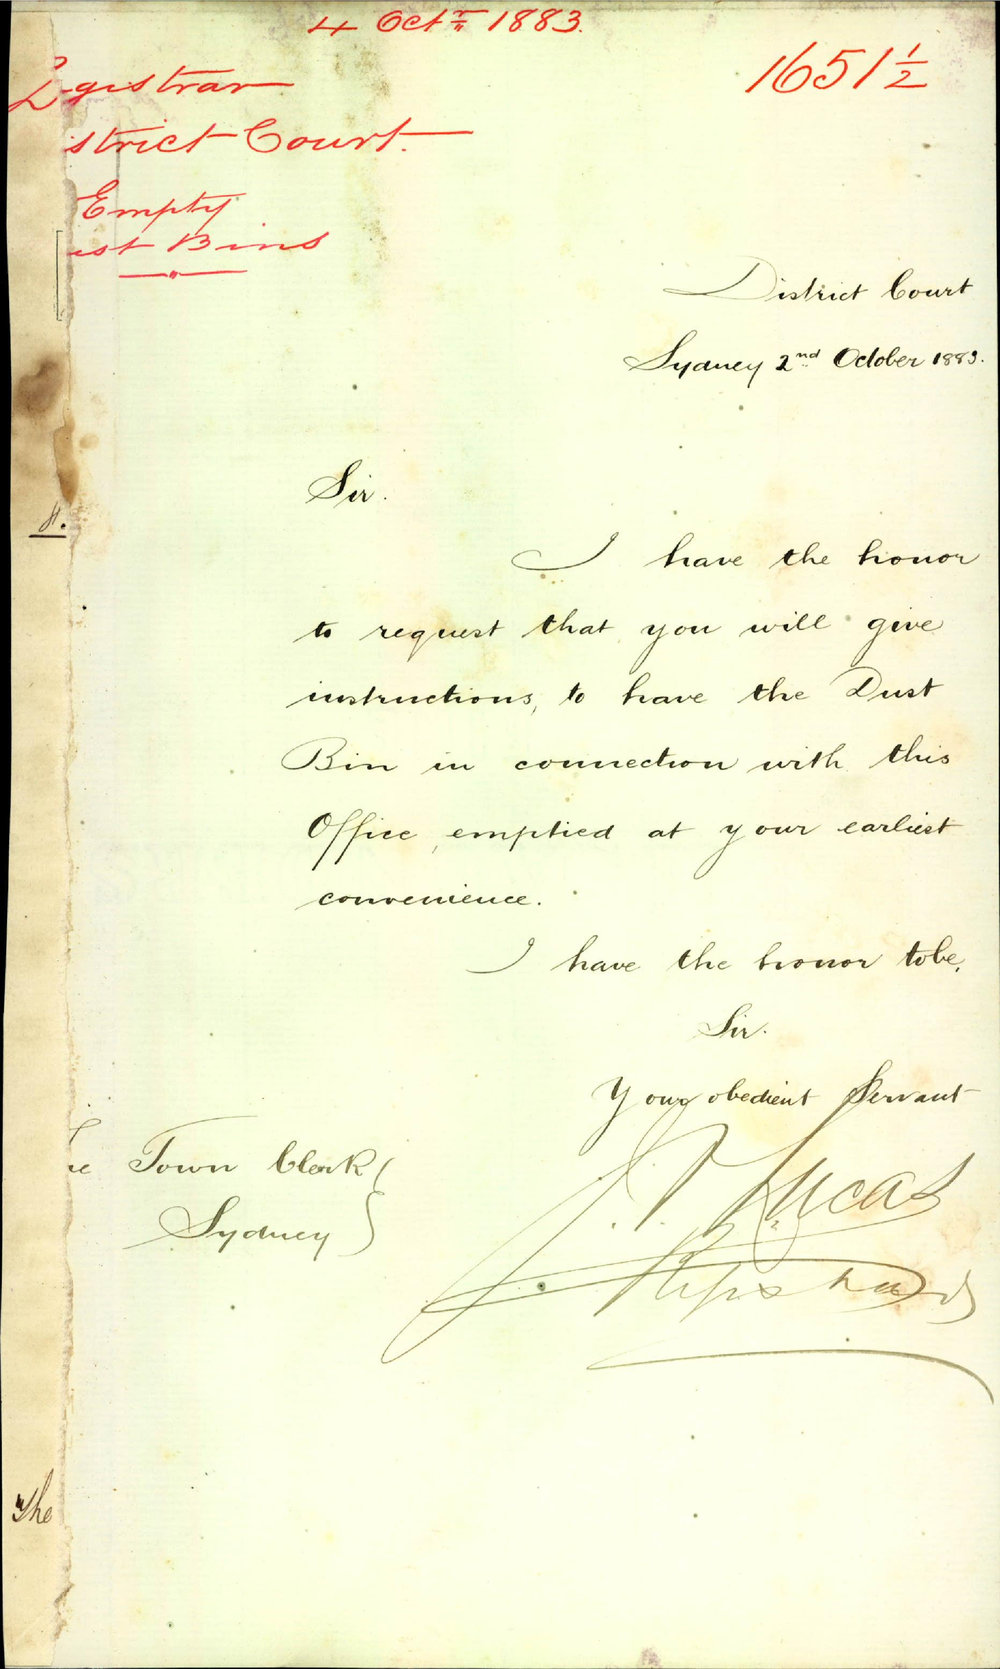 4 Octr 1883.
1651½
egistrar
strict Court.
Empty
ust Bins
District Court
Sydney 2nd October 1883.
Sir.
I have the honor
to request that you will give
instructions, to have the Dust
Bin in connection with this
Office, emptied at your earliest
convenience.
I have the honor to be,
Sir.
Your obedient Servant
J. Lucas
he Town Clerk
Sydney
The